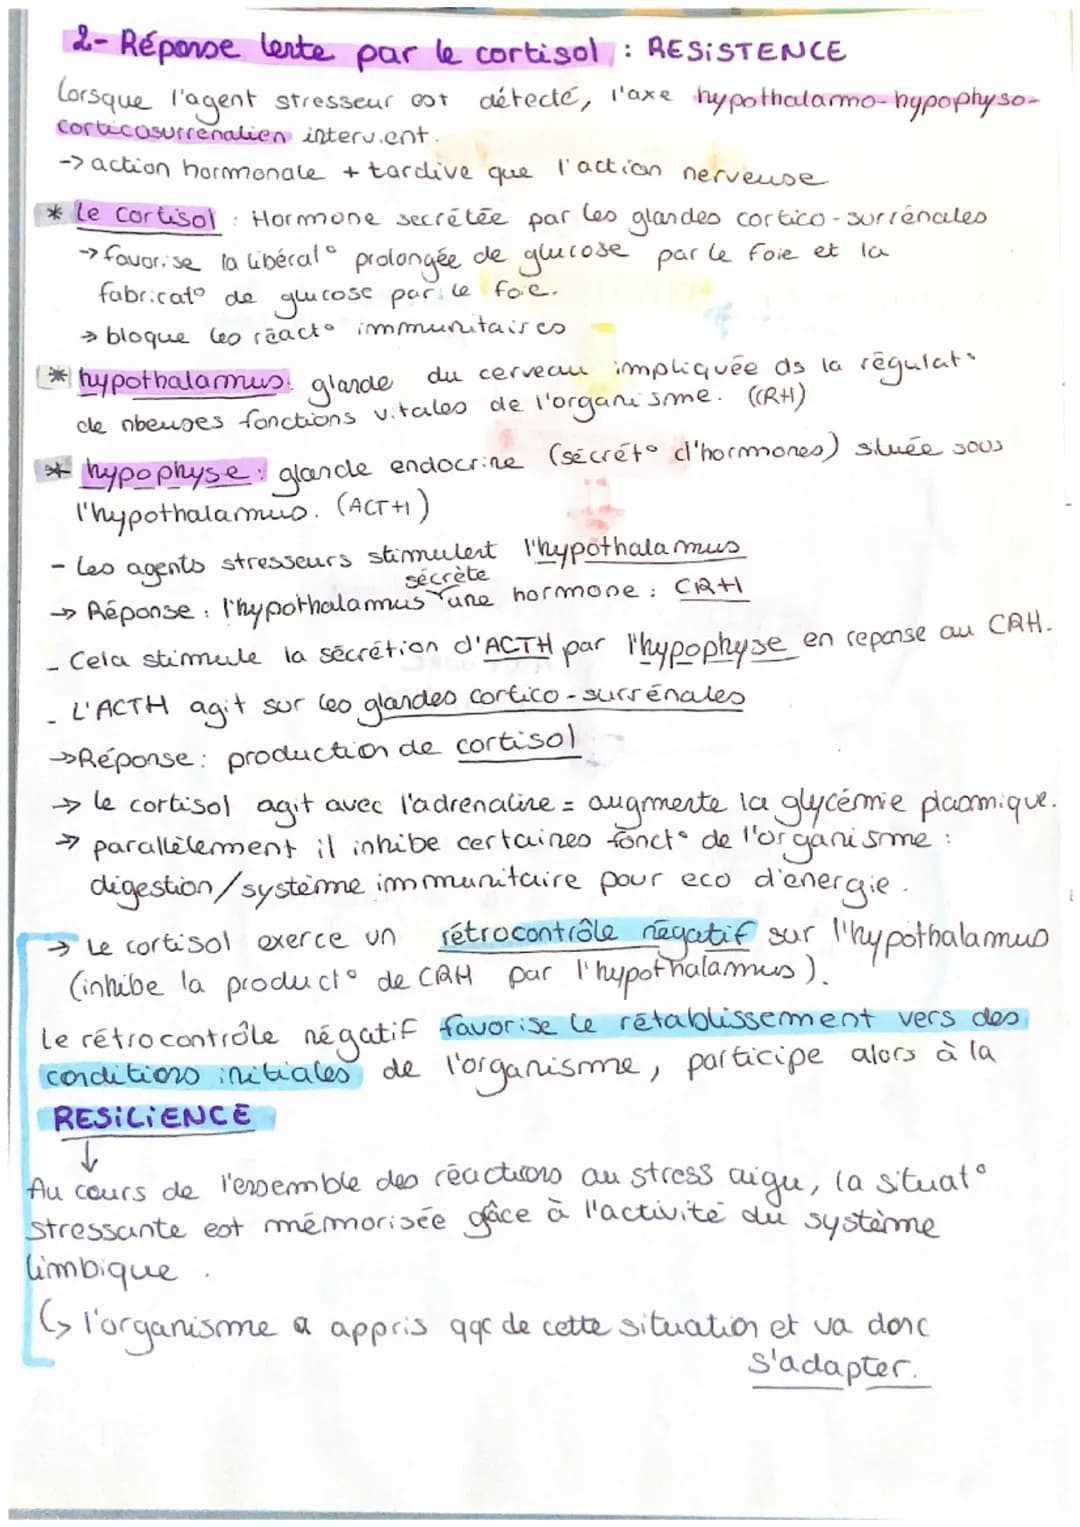 2- Réponse lente par le cortisol : RESISTENCE
Lorsque l'agent stresseur est détecté, l'axe hypothalamo-hypophyso-
corticosurrénalien intervient.
-> action hormonale + tardive que l'action nerveuse
* Le cortisol : Hormone secrétée par les glandes cortico-surrénales
-> favorise la libéral° prolongée de glucose par le foie et la
fabricat° de glucose par le foie.
-> bloque les réact° immunitaires
* hypothalamus: glande du cerveau impliquée ds la régulat°
de nbeuses fonctions vitales de l'organisme. (CRH)
* hypophyse : glande endocrine (sécrét° d'hormones) située sous
l'hypothalamus. (ACTH)
- Les agents stresseurs stimulent l'hypothalamus
sécrète
-> Réponse : l'hypothalamus une hormone : CRH
- Cela stimule la sécrétion d'ACTH par l'hypophyse en reponse au CRH.
- L'ACTH agit sur les glandes cortico-surrénales
-> Réponse : production de cortisol
-> le cortisol agit avec l'adrenaline = augmente la glycémie plasmique.
-> parallèlement il inhibe certaines fonct° de l'organisme :
digestion/système immunitaire pour eco d'énergie.
-> Le cortisol exerce un rétrocontrôle négatif sur l'hypothalamus
(inhibe la product° de CRH par l'hypothalamus).
Le rétrocontrôle négatif favorise le rétablissement vers des
conditions initiales de l'organisme, participe alors à la
RESILIENCE
↓
Au cours de l'ensemble des réactions au stress aigu, la situat°
stressante est mémorisée gâce à l'activité du système
limbique.
↳ l'organisme a appris qqc de cette situation et va donc
s'adapter.